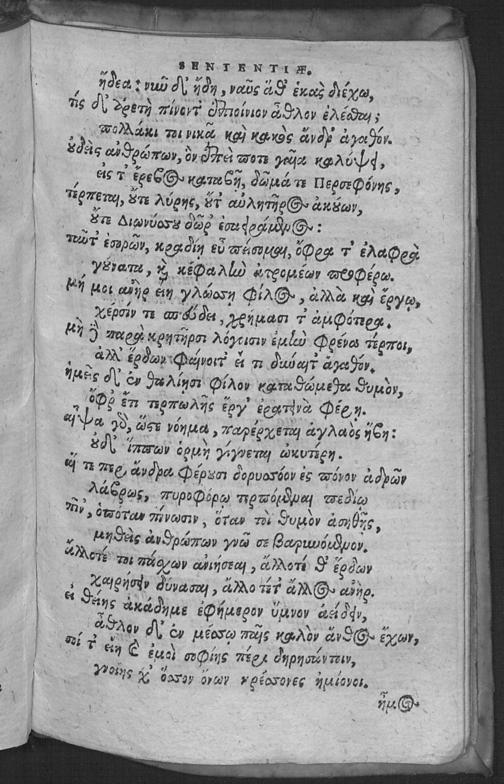 SENTENTIÆ.
ᾔδεα: νῦν δ' ἤδη, ναῦς ἅθ' ἑκὰς διέχω,
τίς δ' ἀρετὴ πίνοντ' ἐπιοίνιον ἆθλον ἑλέσθαι;
πολλάκι τοι νικᾶ καὶ κακὸς ἄνδρ' ἀγαθόν.
οὐδεὶς ἀνθρώπων, ὃν ἐπεί ποτε γαῖα καλύψει,
εἰς τ' ἔρεβος καταβῆ, δῶμά τε Περσεφόνης,
τέρπεται, οὔτε λύρης, οὔτ' αὐλητῆρος ἀκούων,
οὔτε Διωνύσου δῶρ' ἐσαειράμενος:
ταῦτ' ἐσορῶν, κραδίη εὖ πείσομαι, ὄφρα τ' ἐλαφρὰ
γούνατα, καὶ κεφαλὴν ἀτρομέων προφέρω.
μή μοι ἀνὴρ εἴη γλώσσῃ φίλος, ἀλλὰ καὶ ἔργῳ,
χερσίν τε σπεύδει, χρήμασί τ' ἀμφότερα.
μὴ δὲ παρὰ κρητῆρσι λόγοισιν ἐμὴν φρένα τέρποι,
ἀλλ' ἔρδων φαίνοιτ' εἴ τι δύναιτ' ἀγαθόν.
ἡμεῖς δ' ἐν θαλίῃσι φίλον καταθώμεθα θυμὸν,
ὄφρ' ἔτι τερπωλῆς ἔργ' ἐρατεινὰ φέρῃ.
αἶψα γὰρ, ὥστε νόημα, παρέρχεται ἀγλαὸς ἥβη:
οὐδ' ἵππων ὁρμὴ γίγνεται ὠκυτέρη.
αἵ τε περ ἄνδρα φέρουσι δορυσσόον ἐς πόνον ἀδρῶν
λάβρως, πυροφόρῳ τερπόμεναι πεδίῳ
πῖν', ὁπόταν πίνωσιν, ὅταν τοι θυμὸν ἀσηθῇς,
μηδεὶς ἀνθρώπων γνῷ σε βαρυνόμενον.
ἄλλοτέ τοι πάσχων ἀνιήσεαι, ἄλλοτέ θ' ἔρδων
χαιρήσειν δύνασαι, ἄλλοτέ τ' ἄλλος ἀνήρ.
εἰ θείης ἀκάδημε ἐφήμερον ὕμνον ἀείδειν,
ἆθλον δ' ἐν μέσσῳ παῖς καλὸν ἄνθος ἔχων,
σοί τ' εἴη καὶ ἐμοὶ σοφίης πέρι δηρησάντοιν,
γνοίης χ' ὅσσον ὄνων κρέσσονες ἡμίονοι.
ἦμος